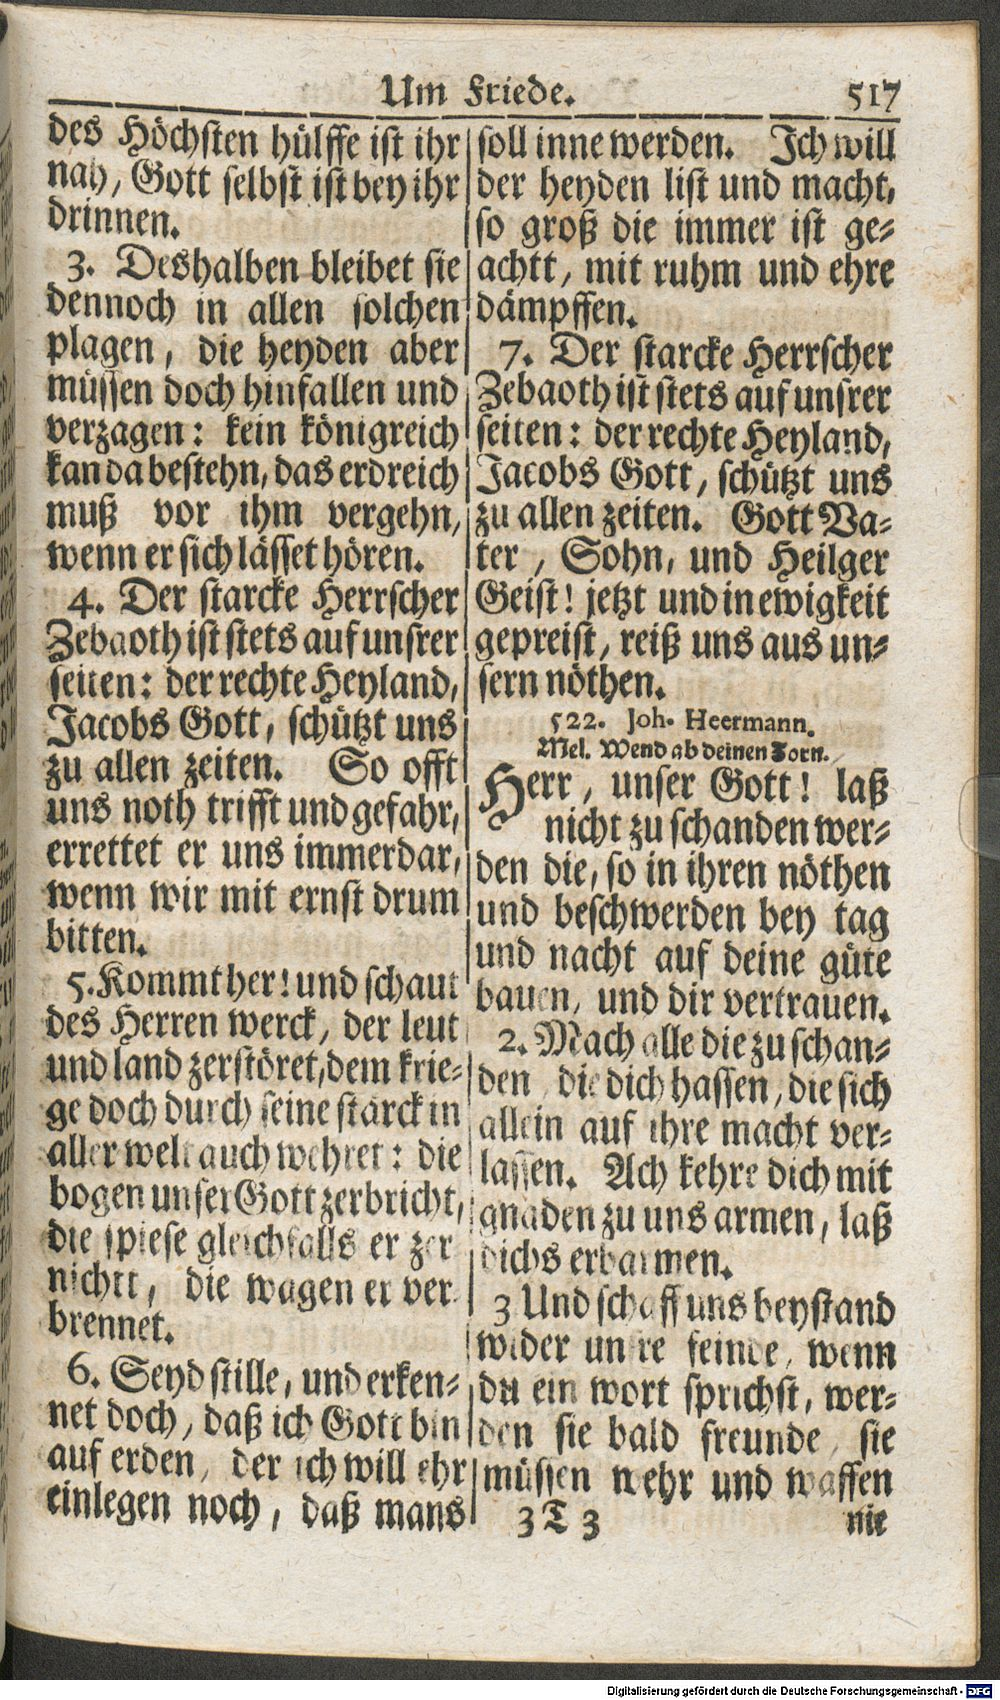 Um Friede. 517
des Höchsten hülffe ist ihr
nah, Gott selbst ist bey ihr
drinnen.
3. Deshalben bleibet sie
dennoch in allen solchen
plagen, die heyden aber
müssen doch hinfallen und
verzagen: kein königreich
kan da bestehn, das erdreich
muß vor ihm vergehn,
wenn er sich lässet hören.
4. Der starcke Herrscher
Zebaoth ist stets auf unsrer
seiten: der rechte Heyland,
Jacobs Gott, schützt uns
zu allen zeiten. So offt
uns noth trifft und gefahr,
errettet er uns immerdar,
wenn wir mit ernst drum
bitten.
5. Kommt her! und schaut
des Herren werck, der leut
und land zerstöret, dem krie-
ge doch durch seine stärck in
aller welt auch wehret: die
bogen unser Gott zerbricht,
die spiese gleichfalls er zer
nichtt, die wagen er ver
brennet.
6. Seyd stille, und erken-
net doch, daß ich Gott bin
auf erden, der ich will ehr
einlegen noch, daß mans
soll inne werden. Ich will
der heyden list und macht,
so groß die immer ist ge-
achtt, mit ruhm und ehre
dämpffen.
7. Der starcke Herrscher
Zebaoth ist stets auf unsrer
seiten: der rechte Heyland,
Jacobs Gott, schützt uns
zu allen zeiten. Gott Va-
ter, Sohn, und Heilger
Geist! jetzt und in ewigkeit
gepreist, reiß uns aus un-
sern nöthen.
522. Joh. Heermann.
Mel. Wend ab deinen Zorn.
Herr, unser Gott! laß
nicht zu schanden wer-
den die, so in ihren nöthen
und beschwerden bey tag
und nacht auf deine güte
bauen, und dir vertrauen.
2. Mach alle die zu schan-
den, die dich hassen, die sich
allein auf ihre macht ver-
lassen. Ach kehre dich mit
gnaden zu uns armen, laß
dichs erbarmen.
3 Und schaff uns beystand
wider unsre feinde, wenn
du ein wort sprichst, wer-
den sie bald freunde, sie
müssen wehr und waffen
3 T 3 nie
Digitalisierung gefördert durch die Deutsche Forschungsgemeinschaft - DFG